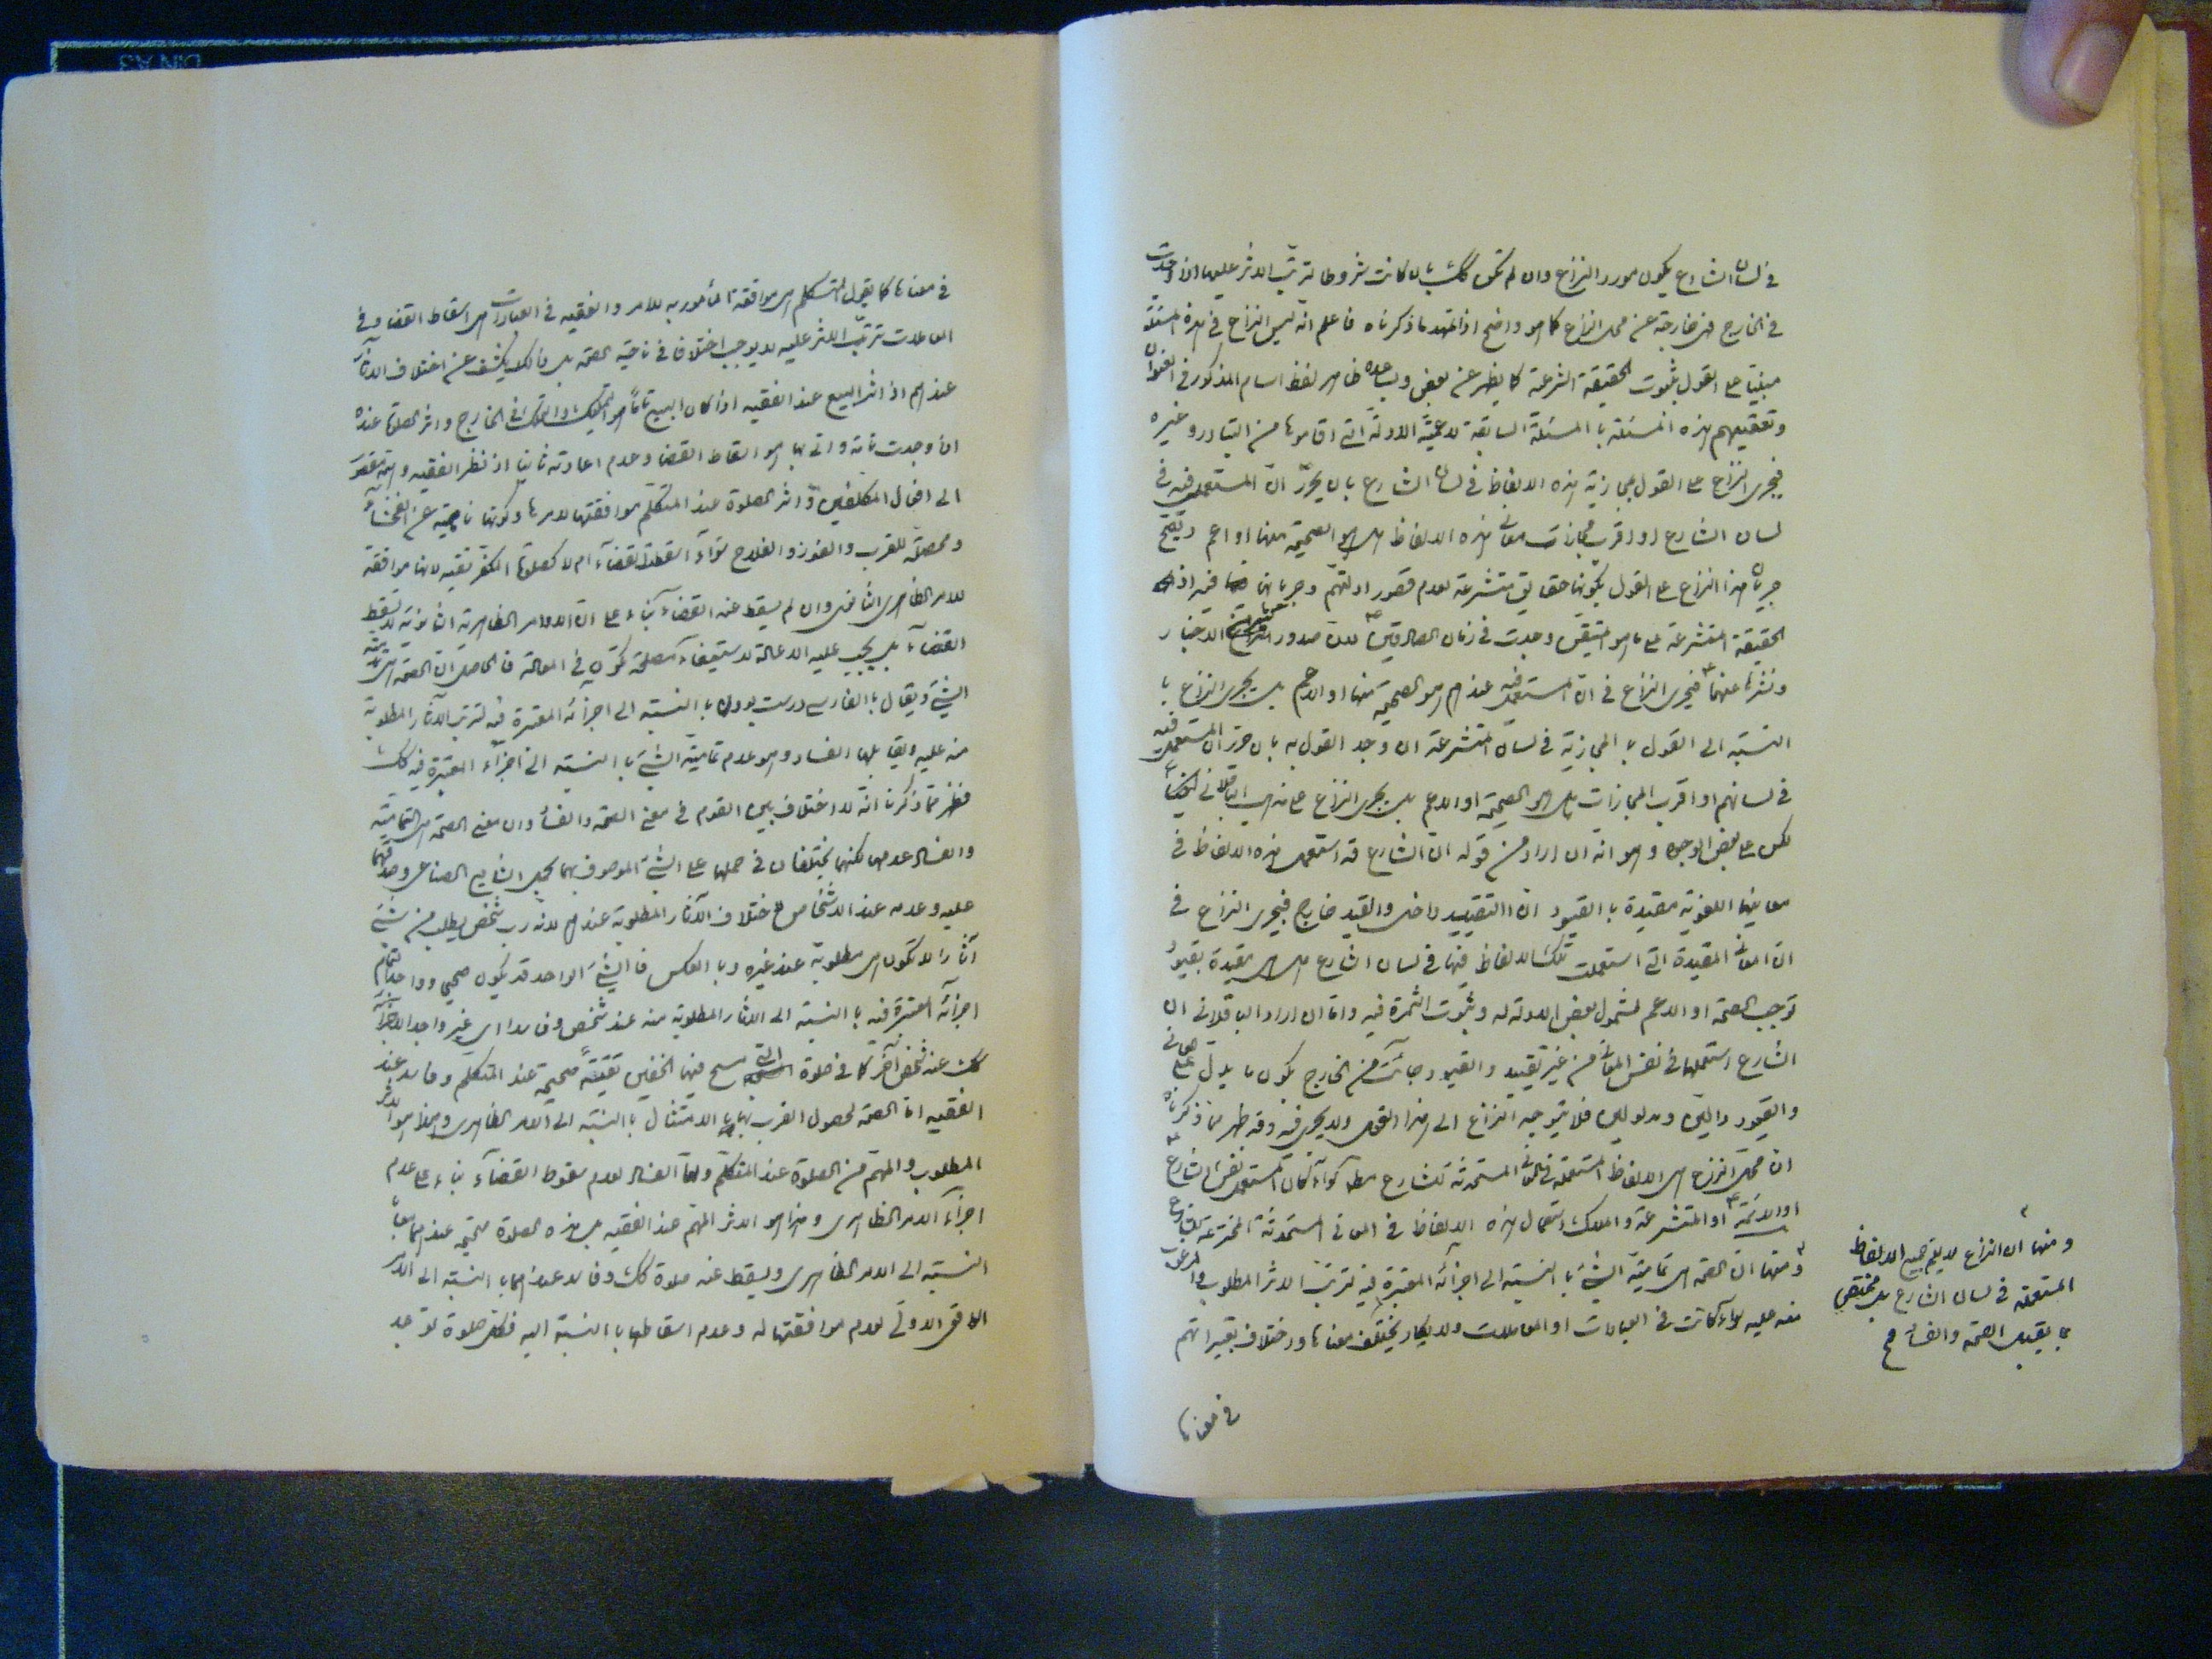 في لسان الشارع يكون مورد النزاع وان لم تكن كك بان كانت شروطا لترتب الاثر عليها اذا وجدت
في الخارج فهي خارجة عن محل النزاع كما هو واضح اذا تمهد ما ذكرناه فاعلم انه ليس النزاع في هذه المسئلة
مبنيّا على القول بثبوت الحقيقة الشرعية كما يظهر عن بعض ويساعده ظاهر لفظ اسام المذكور في العنوان
وتعقيبهم هذه المسئلة با المسئلة السابقة لاعمية الادلة التي اقاموها من التبادر وغيره
فيجرى النزاع على القول بمجازية هذه الالفاظ في لسان الشارع بان يحرّر انّ المستعمل فيه في
لسان الشارع او اقرب مجازات معاني هذه الالفاظ هل هو الصحيحة منها او اعم ويتضح
جريان هذا النزاع على القول بكونها حقايق متشرعة لعدم قصور ادلتهم وجريانها فيه اذ
الحقيقة المتشرعة على ما هو المتيقن وجدت في زمان الصادقين لان صدور الاخبار
ونشرها عنهما فيجرى النزاع في انّ المستعمل فيه عندهم هو الصحيحة منها او الاعم بل يجرى النزاع با
النسبة الى القول با المجازية في لسان المتشرعة ان وجد القول به بان حرّر انّ المستعمل فيه
في لسانهم او اقرب المجازات هل هو الصحيحة او الاعم بل يجرى النزاع على مذهب الباقلاني ايضا
لكن على بعض الوجوه وهو انه ان اراد من قوله ان الشارع قد استعمل هذه الالفاظ في
معانيها اللغوية مقيدة با القيود ان التقييد داخل والقيد خارج فيجرى النزاع في
ان المعاني المقيدة التي استعملت تلك الالفاظ فيها في لسان الشارع هل هي مقيدة بقيود
توجب الصحة او الاعم لشمول بعض الادلة له وثبوت الثمرة فيه واما ان اراد الباقلاني ان
الشارع استعملها في نفس المعاني من غير تقييد والقيود جائت من الخارج يكون ما يدل على المعاني
والقيود دالين ومدلولين فلا يتوجه النزاع الى هذا القول ولا يجرى فيه وقد ظهر مما ذكرناه
ان محل النزاع هي الالفاظ المستعملة في المعاني المستحدثة للشارع سوآء كان المستعمل نفس الشارع
او الائمة او المتشرعة والملاك استعمال هذه الالفاظ في المعاني المستحدثة المخترعة للشارع
ومنها انّ الصحة هي تمامية الشئ با النسبة الى اجزائه المعتبرة فيه لترتب الاثر المطلوب والمرغوب
منه عليه سوآء كانت في العبادات او المعاملات ولا يكاد يختلف معناها واختلاف تعبيراتهم
ومنها ان النزاع لا يعم جميع الالفاظ
المستعملة في لسان الشارع بل مختص
بما يقبل الصحة والفساد
في معناها
في معناها كما يقول المتكلم هي موافقة المأمور به للامر والفقيه في العبادات هي اسقاط القضا وفي
المعاملات ترتب الاثر عليه لا يوجب اختلافا في ناحية الصحة بل ذلك يكشف عن اختلاف الآثار
عندهم اذ اثر البيع عند الفقيه اذا كان البيع تامّا هو التمليك والتملك في الخارج واثر الصلوة عنده
اذا وجدت تامة واتى بها هو اسقاط القضا وعدم اعادته ثانيا اذ نظر الفقيه وهمّه مقصور
الى افعال المكلفين واثر الصلوة عند المتكلم موافقتها لامرها وكونها ناهية عن الفحشاء
ومحصلة للقرب والفوز والفلاح سوآء اسقطت القضآء ام لا كصلوة المكلف تقية لانها موافقة
للامر الظاهرى الثانوى وان لم يسقط عنه القضآء بناء على ان الاوامر الظاهرية الثانوية لا يسقط
القضآء بل يجب عليه الاعادة لاستيفاء مصلحة تكون في المعادة فالحاصل ان الصحة هي تمامية
الشئ ويقال با الفارسي درست بودن با النسبة الى اجزائه المعتبرة فيه لترتب الآثار المطلوبة
منه عليه ويقابلها الفساد وهو عدم تمامية الشئ با النسبة الى اجزاء المعتبرة فيه كك
فظهر مما ذكرنا انه لا اختلاف بين القوم في معنى الصحة والفساد وان معنى الصحة هي التمامية
والفساد عدمها لكنهما يختلفان في حملهما على الشئ الموصوف بهما بحمل الشايع الصناعى وصدقهما
عليه وعدمه عند الاشخاص لاختلاف الآثار المطلوبة عندهم لانه رب شخص يطلب من شئ
آثارا لا تكون هي مطلوبة عند غيره وبا العكس فا الشئ الواحد قد يكون صحيحا وواجدا لتمام
اجزآئه المعتبرة فيه با النسبة الى الاثار المطلوبة منه عند شخص وفاسدا اى غير واجد الاجزآء
كك عند شخص آخر كما في صلوة التي مسح فيها الخفين تقيةً صحيحة عند المتكلم وفاسد عند
الفقيه اما الصحة لحصول القرب بها الامتثال با النسبة الى الامر الظاهرى وهذا هو الاثر
المطلوب والمهمّ من الصلوة عند المتكلم واما الفساد لعدم سقوط القضآء بناء على عدم
اجزاء الامر الظاهرى وهذا هو الاثر المهمّ عند الفقيه بل هذه الصلوة صحيحة عندهما معاً
النسبة الى الامر الظاهرى ويسقط عنه صلوة كك وفاسد عندهما با النسبة الى الامر
الواقعى الاولى لعدم موافقتها له وعدم اسقاطها با النسبة اليه فكل صلوة توجد